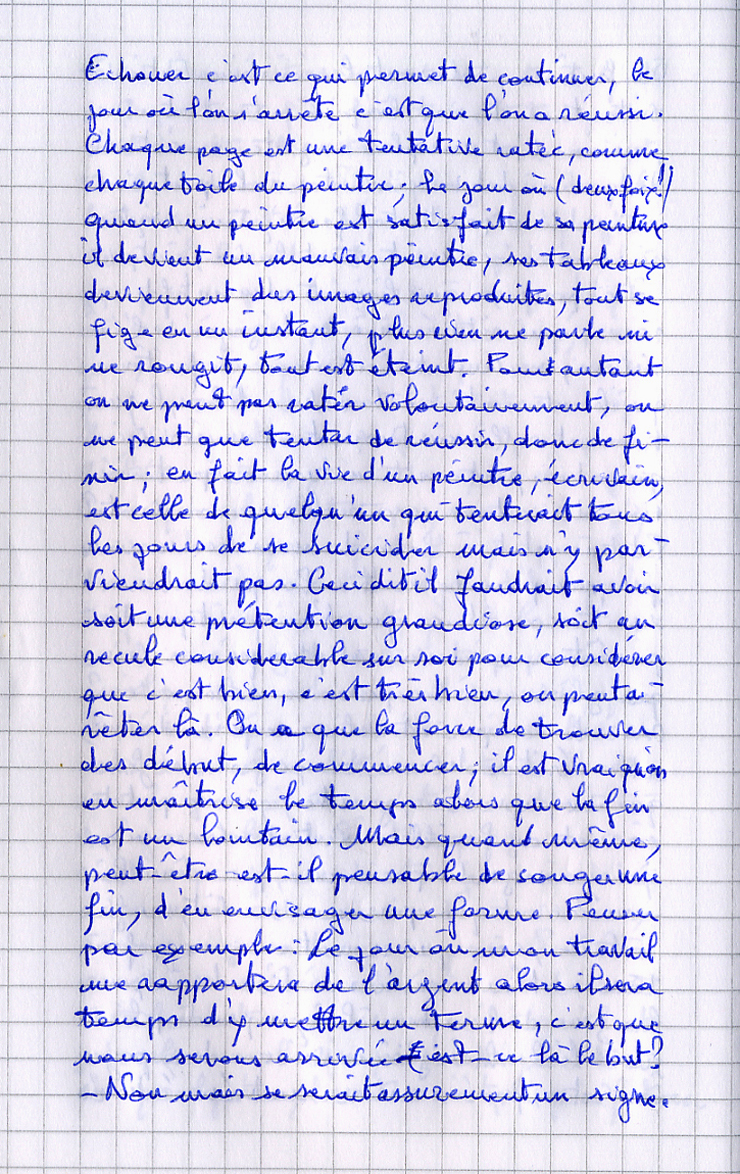 Echouer c'est ce qui permet de continuer, le
jour où l'on s'arrête c'est que l'on a réussi.
Chaque page est une tentative ratée, comme
chaque toile du peintre; Le jour où (deux fois!)
quand un peintre est satisfait de sa peinture
il devient un mauvais peintre, ses tableaux
deviennent des images reproduites, tout se
fige en un instant, plus rien ne parle ni
ne rougit, tout est éteint. Pour autant
on ne peut pas ratér volontairement, on
ne peut que tenter de réussir, donc de fi-
nir; en fait la vie d'un peintre, écrivain,
est celle de quelqu'un qui tenterait tous
les jours de se suicider mais n'y par-
viendrait pas. Ceci dit il faudrait avoir
soit une prétention grandiose, soit un
recule considerable sur soi pour considérer
que c'est bien, c'est très bien, on peut a-
rêter là. On a que la force de trouver
des début, de commencer; il est vrai qu'on
en maîtrise le temps alors que la fin
est un lointain. Mais quand même,
peut-être est-il pensable de songer une
fin, d'en envisager une forme. Penser
par exemple: Le jour où mon travail
me rapportera de l'argent alors il sera
temps d'y mettre un terme, c'est que
nous serons arrivé est-ce là le but?
- Non mais se serait assurement un signe.